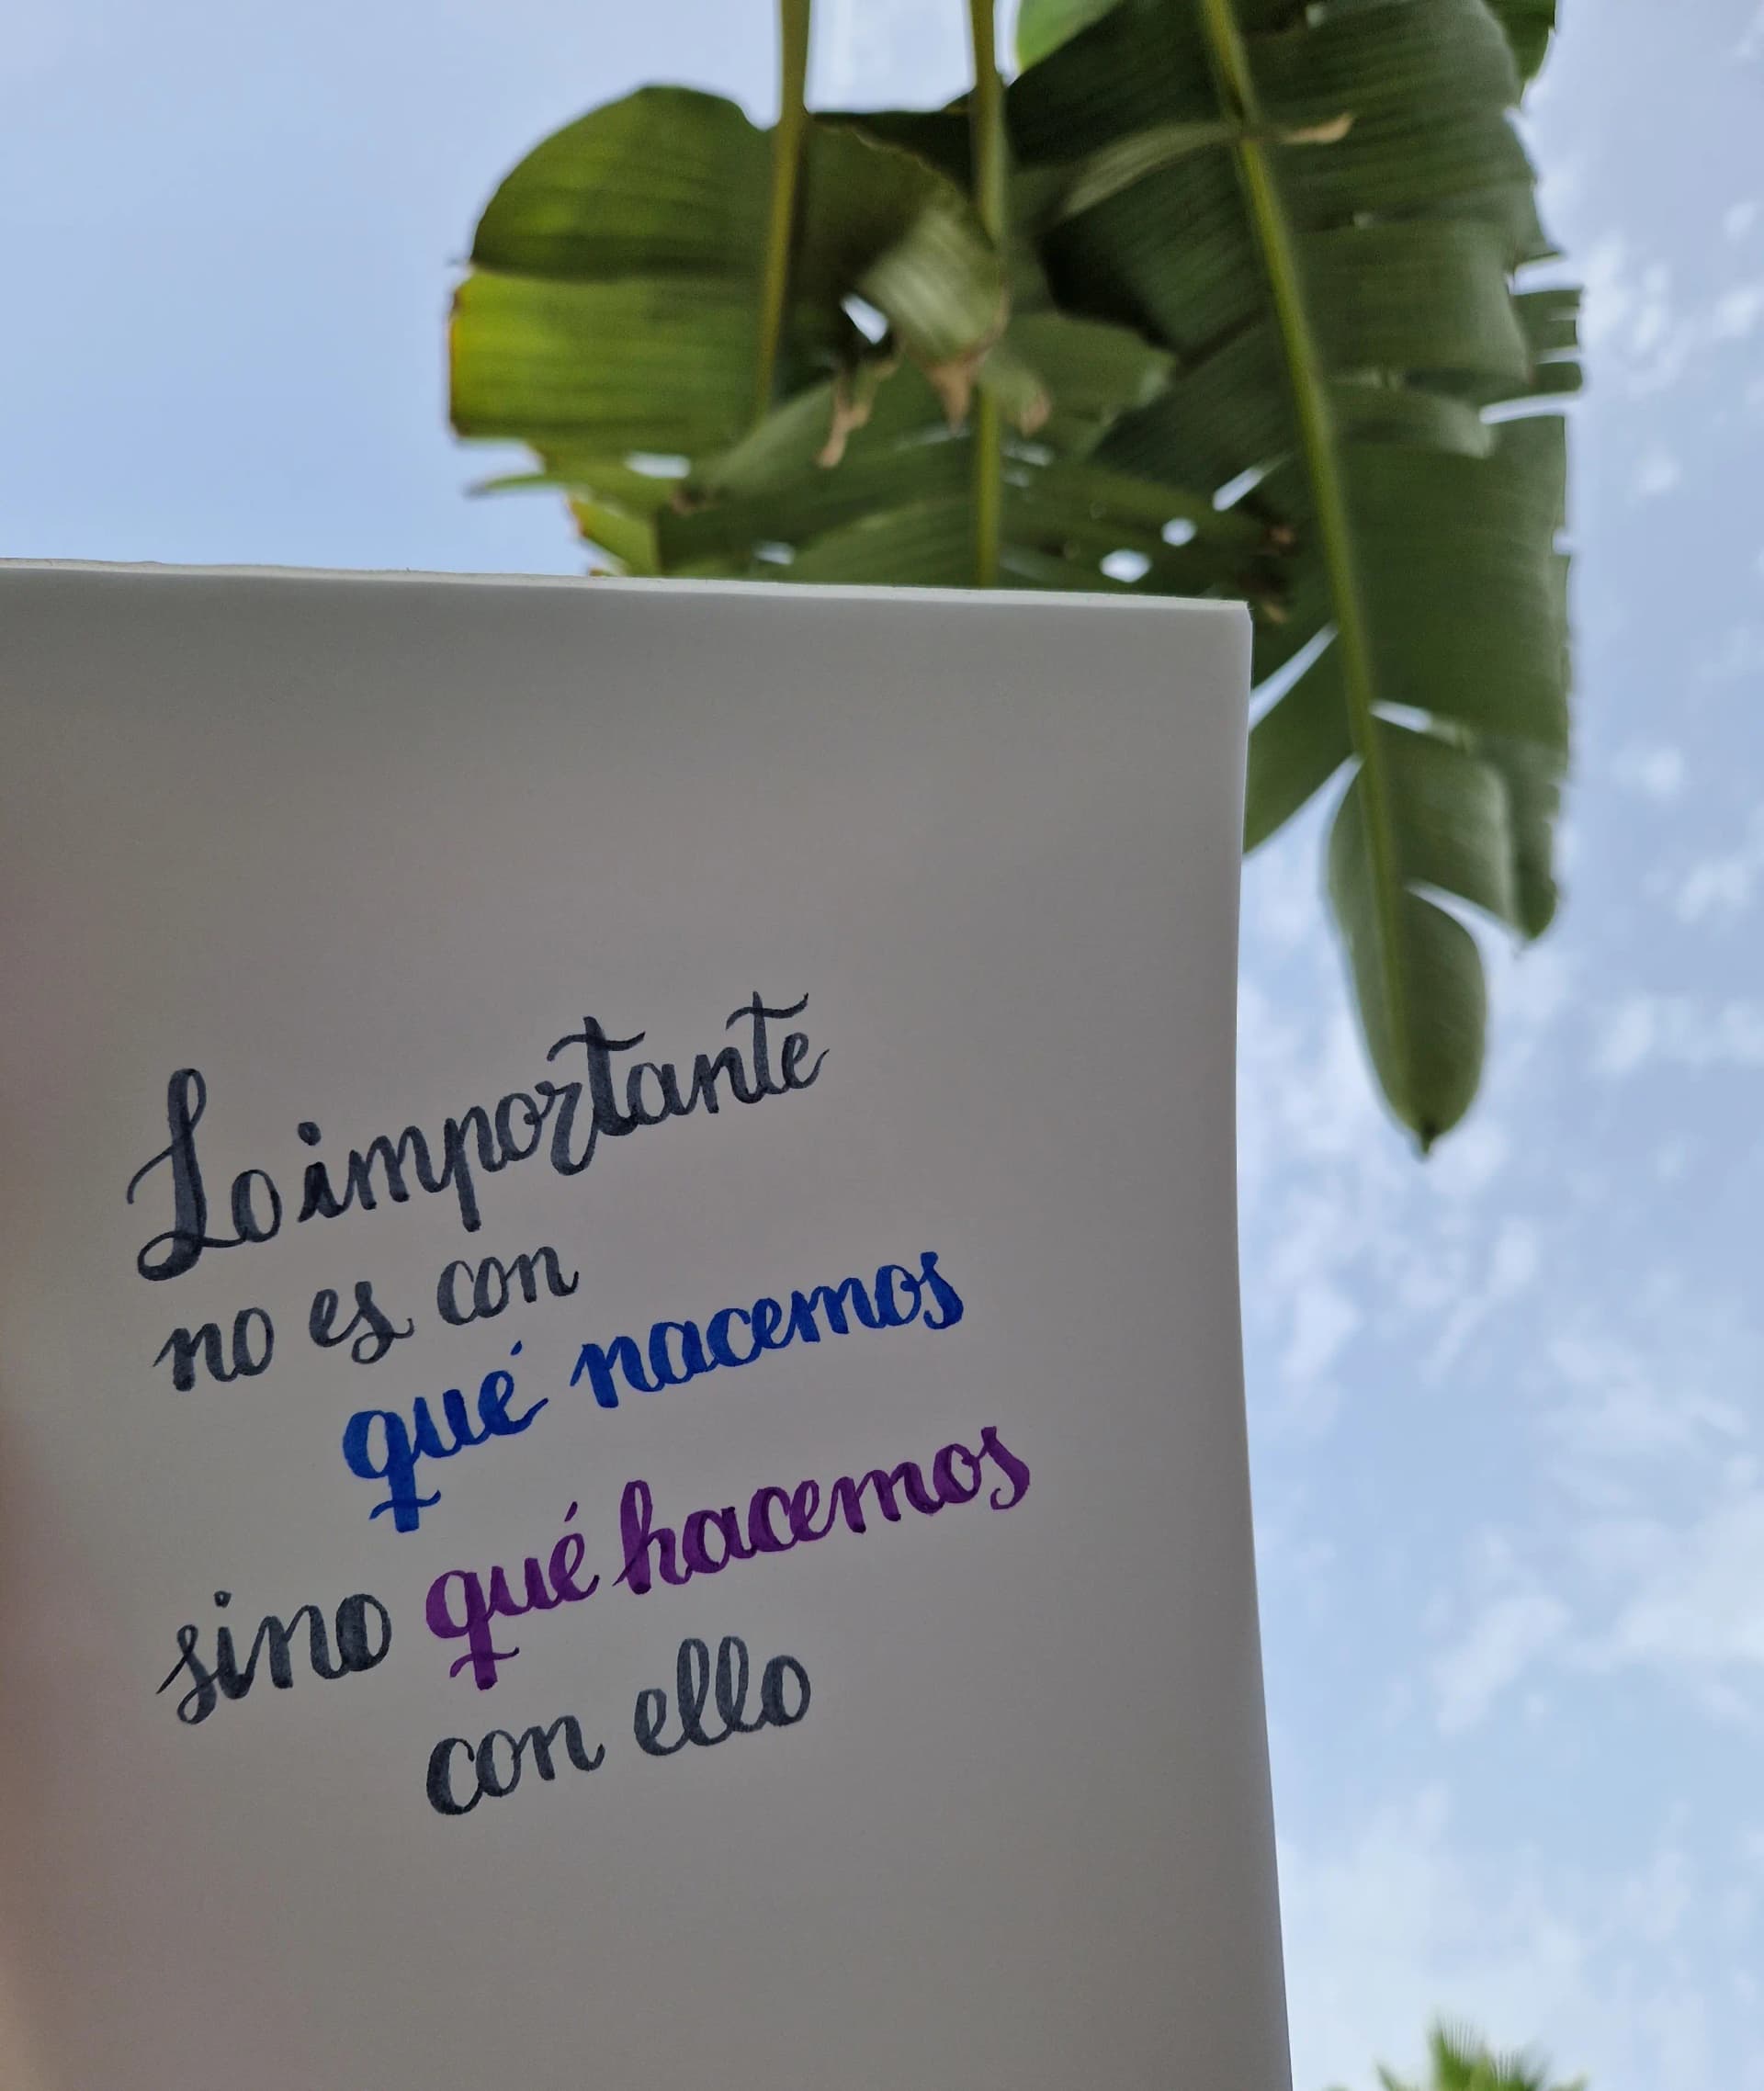 Lo importante
no es con
qué nacemos
sino qué hacemos
con ello